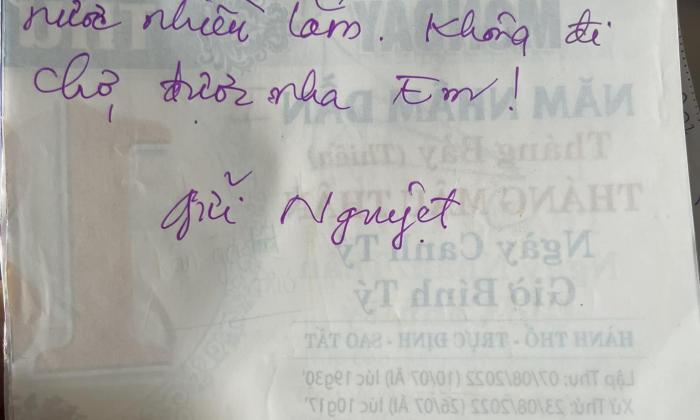 nước nhiều lắm. Không đi
chợ được nha Em!
Gửi Nguyệt
MONDAY
THỨ
NĂM NHÂM DẦN
Tháng Bảy (Thiếu)
THÁNG MẬU THÂN
Ngày Canh Tý
Giờ Bính Tý
HÀNH THỔ - TRỰC ĐỊNH - SAO TẤT
Lập Thu: 07/08/2022 (10/07 Âl) lúc 19g30'
Xử Thử: 23/08/2022 (26/07 Âl) lúc 10g17'